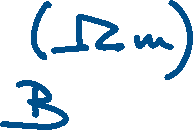 (Ωm)
B